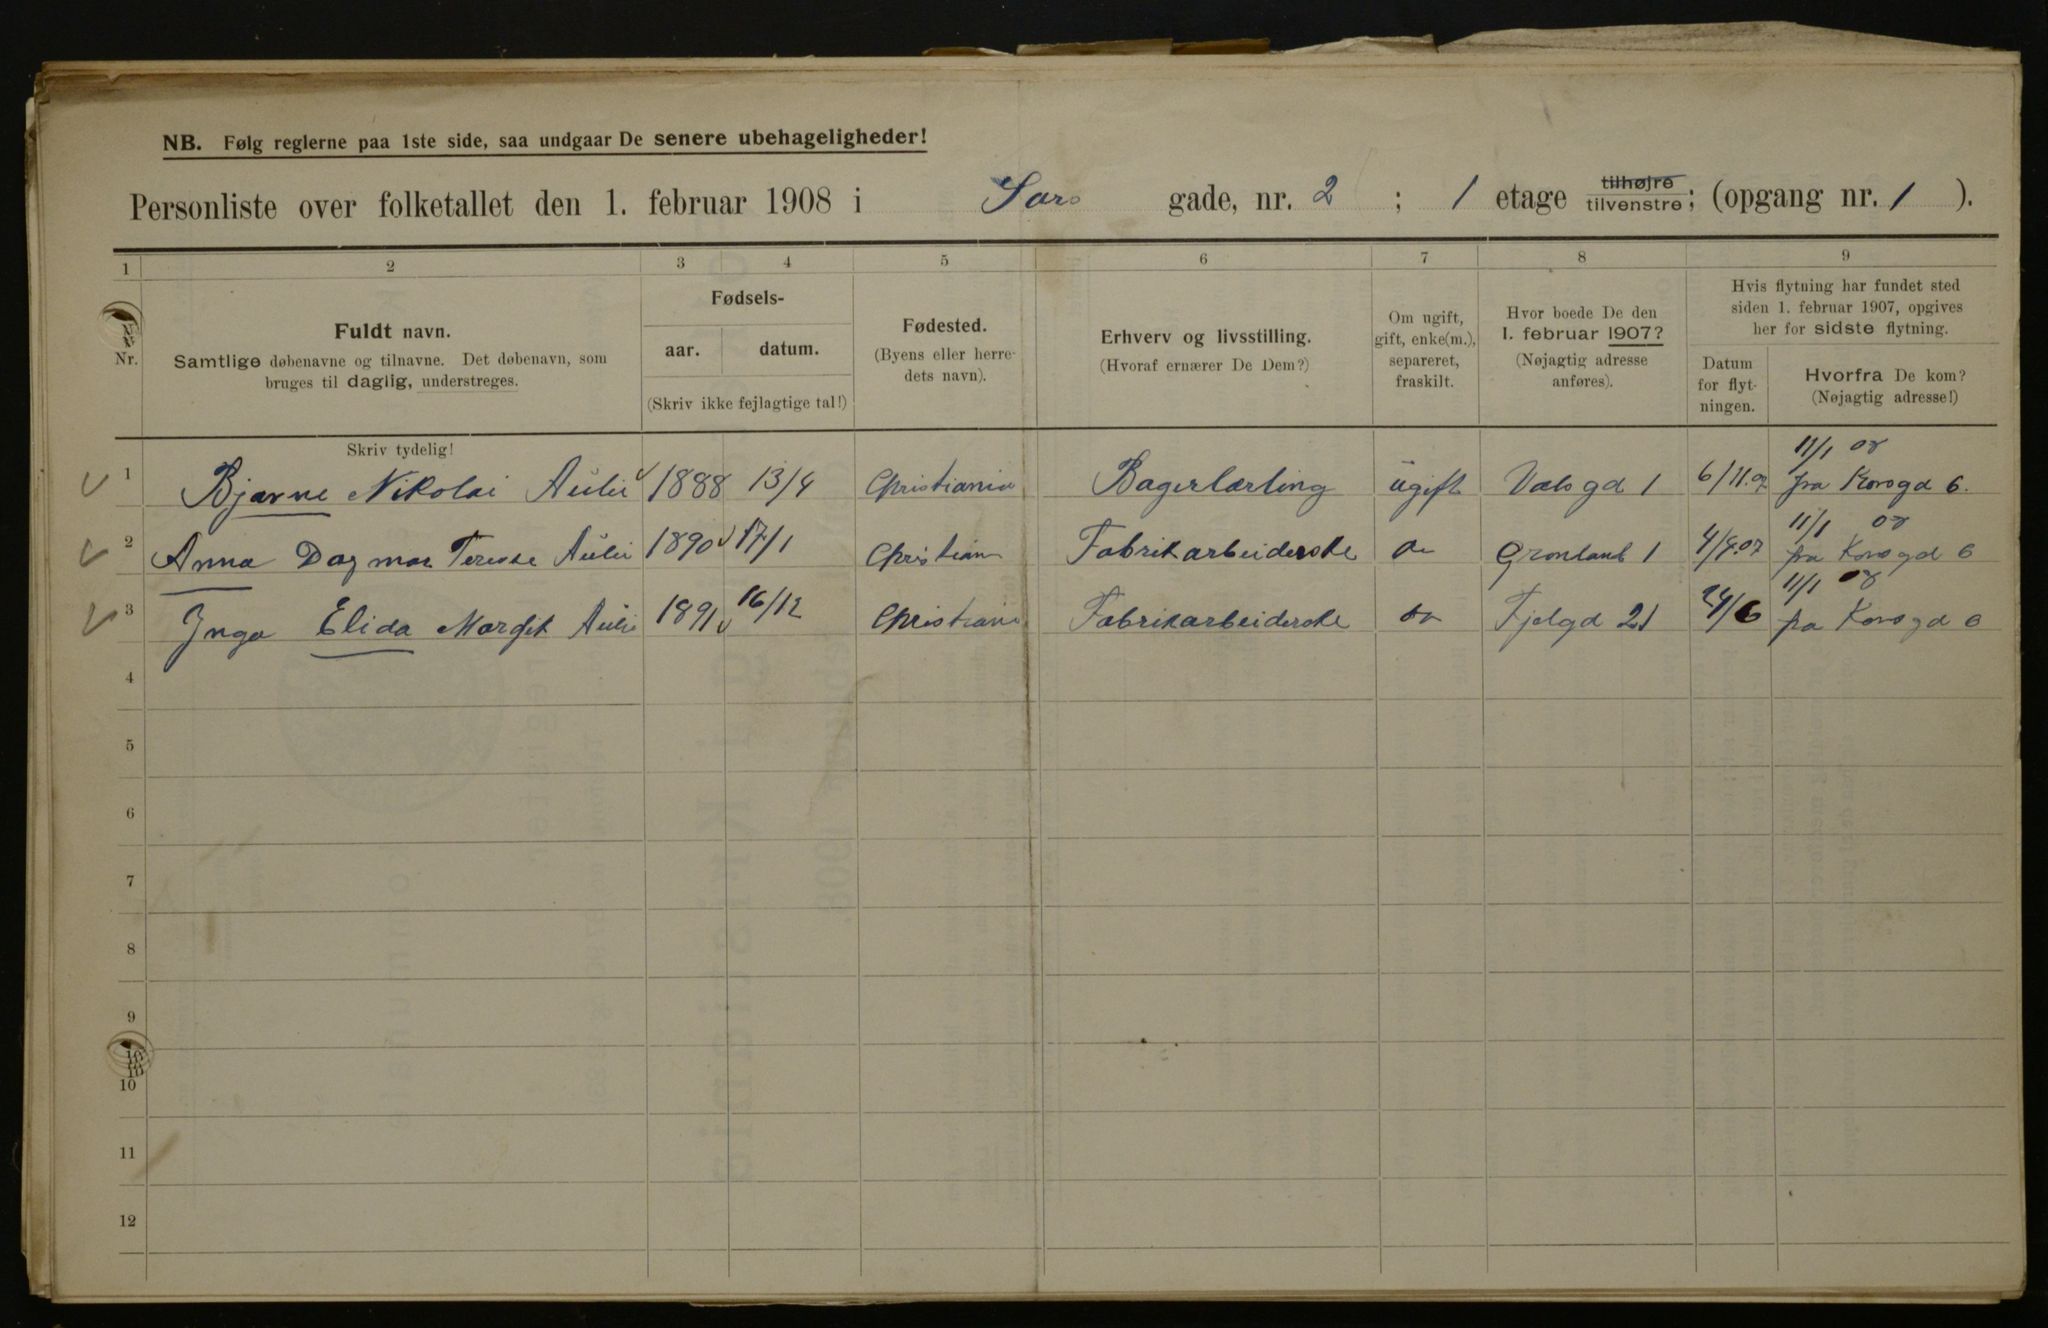 NB. Følg reglerne paa 1ste side, saa undgaar De senere ubehageligheder!
Personliste over folketallet den 1. februar 1908 i Sars gade, nr. 2 ; 1 etage tilhøjre tilvenstre; (opgang nr. 1 ).
1 2 3 4 5 6 7 8 9
Nr.
Fuldt navn.
Samtlige døbenavne og tilnavne. Det døbenavn, som
bruges til daglig, understreges.
Skriv tydelig!
Fødsels-
aar. datum.
(Skriv ikke fejlagtige tal!)
Fødested.
(Byens eller herre-
dets navn).
Erhverv og livsstilling.
(Hvoraf ernærer De Dem?)
Om ugift,
gift, enke(m.),
separeret,
fraskilt.
Hvor boede De den
1. februar 1907?
(Nøjagtig adresse
anføres).
Hvis flytning har fundet sted
siden 1. februar 1907, opgives
her for sidste flytning.
Datum
for flyt-
ningen.
Hvorfra De kom?
(Nøjagtig adresse!)
11/1 08
1 Bjarne Nikolai 1888 13/4 Christiania Bagerlærling ugift Valsgd 1 6/11.07 fra Korsgd 6.
11/1 08
2 Anna Dagmar 1890 17/1 Christian Fabrikarbeiderske Grønland 1 4/9.07 fra Korsgd 6
11/1 08
3 Inga Elida Margit 1891 16/12 Christiania Fabrikarbeiderske Fjelgd 21 24/6 fra Korsgd 6
4
5
6
7
8
9
10
11
12